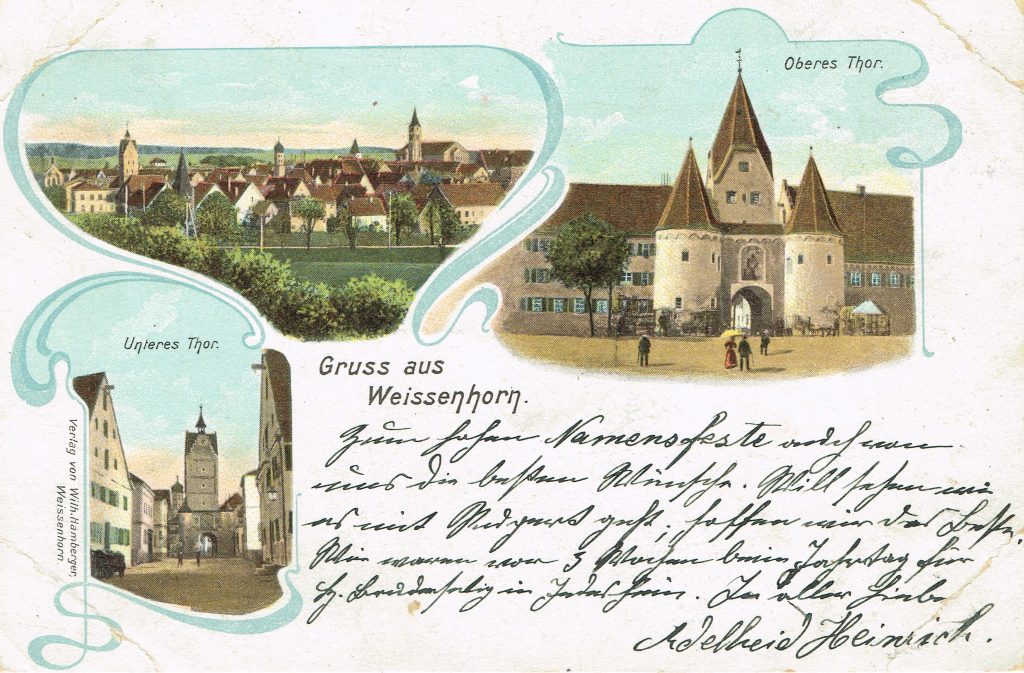 Oberes Thor.
Unteres Thor.
Gruss aus
Weissenhorn.
Verlag von Wilh. Hamberger,
Weissenhorn
Zum hohen Namensfeste auch von
uns die besten Wünsche. Will sehen wie
es mit geht, hoffen wir das Beste.
Wir waren vor 3 Wochen beim Jahrtag für
in. In aller Liebe
Adelheid Heinrich.